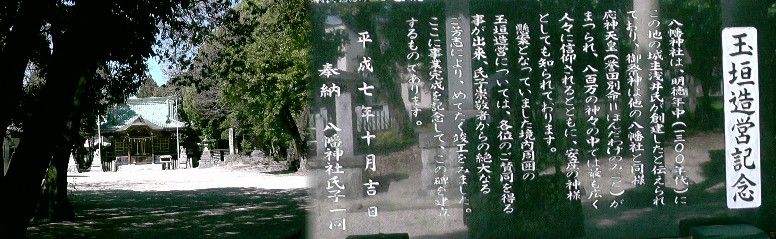 玉垣造営記念
八幡神社は、明徳年中(一三〇〇年代)に
この地の城主浅井氏が創建したと伝えられ
ており、御祭神は他の八幡社と同様
応神天皇(誉田別命=ほんだわけのみこと)が
まつられ、八百万の神々の中では最も広く
人々に信仰されるとともに、安産の神様
としても知られております。
懸案となっていました境内周囲の
玉垣造営については、各位のご賛同を得る
事が出来、氏子崇敬者からの絶大なる
ご芳志により、めでたく竣工をみました。
ここに事業完成を記念して、この碑を建立
するものであります。
平成七年十月吉日
奉納 八幡神社氏子一同